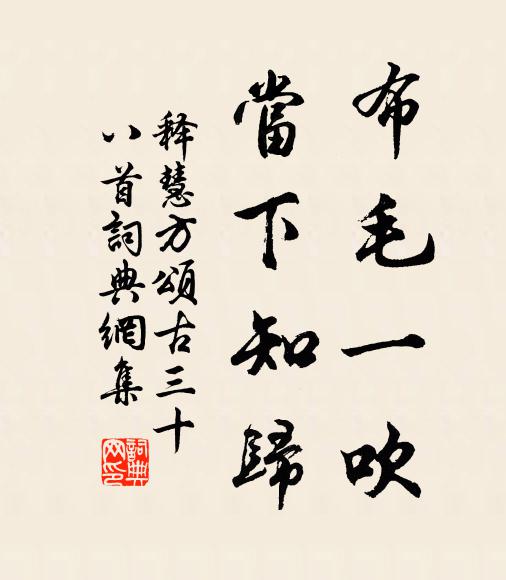 布毛一吹
當下知歸
释慧方頌古三十
八首詞典網集
詞典
网印